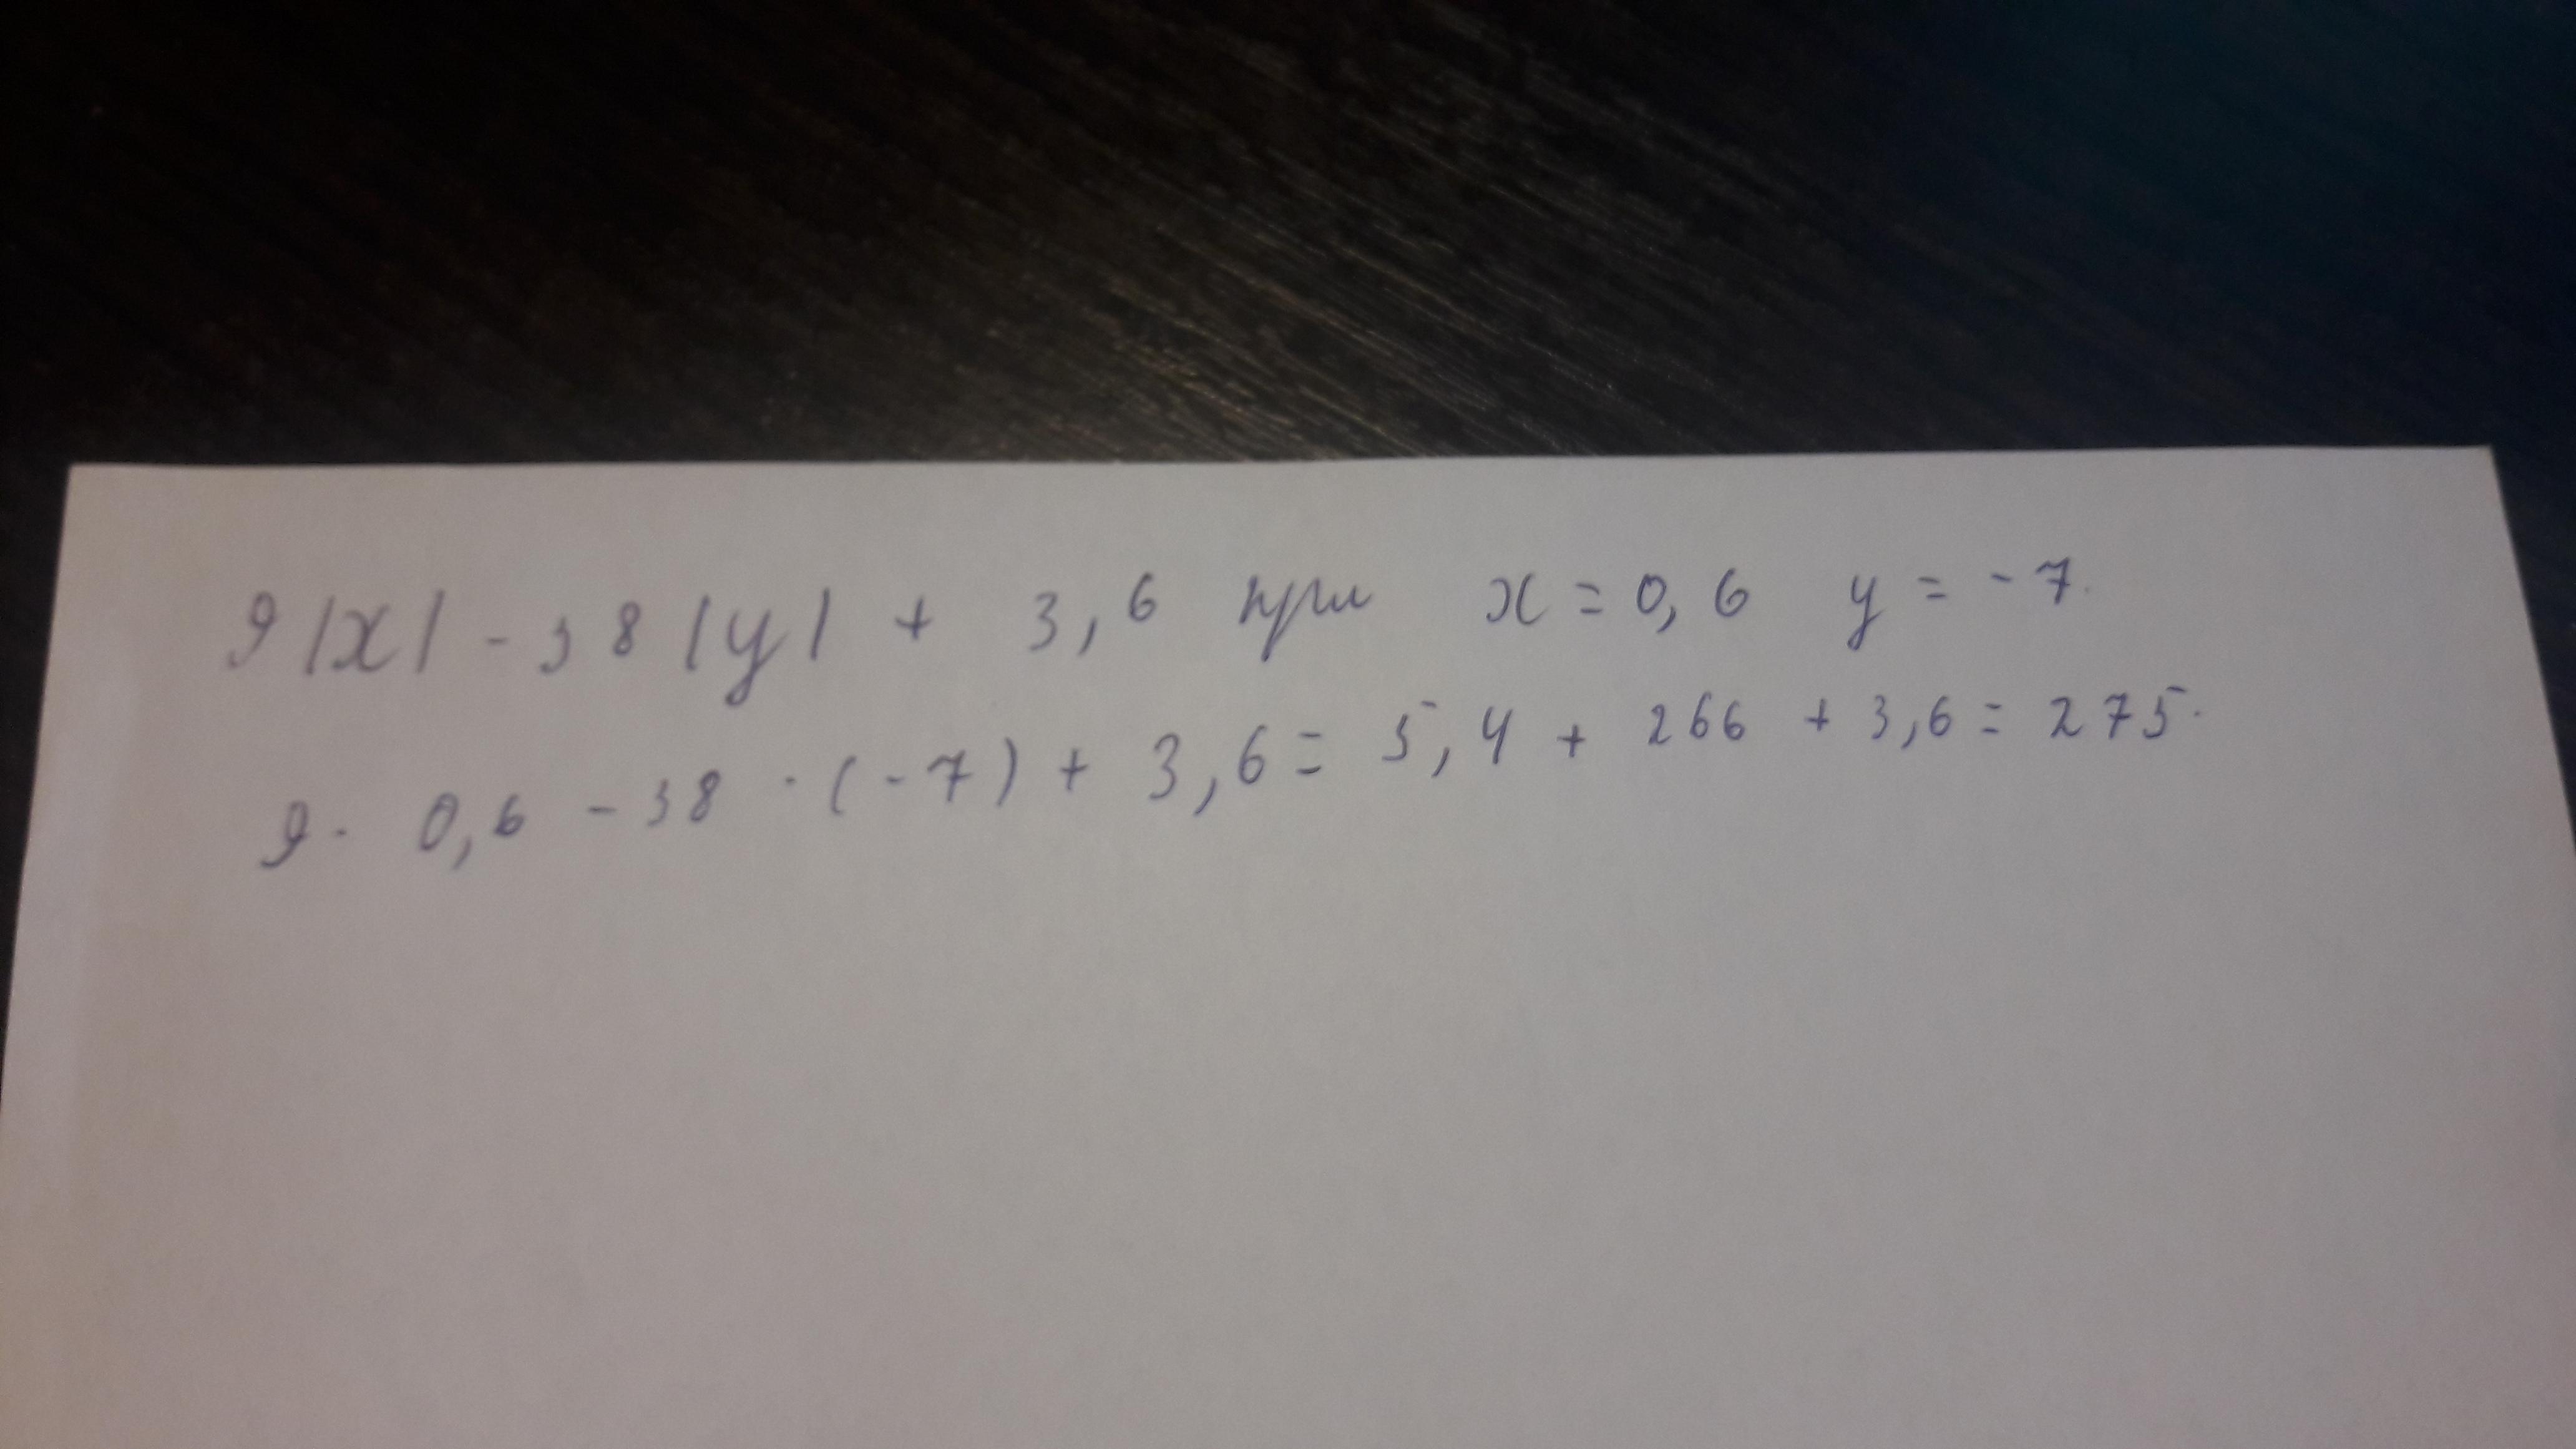 9|x| - 38|y| + 3,6 при x = 0,6 y = -7.
9 · 0,6 - 38 · (-7) + 3,6 = 5,4 + 266 + 3,6 = 275.